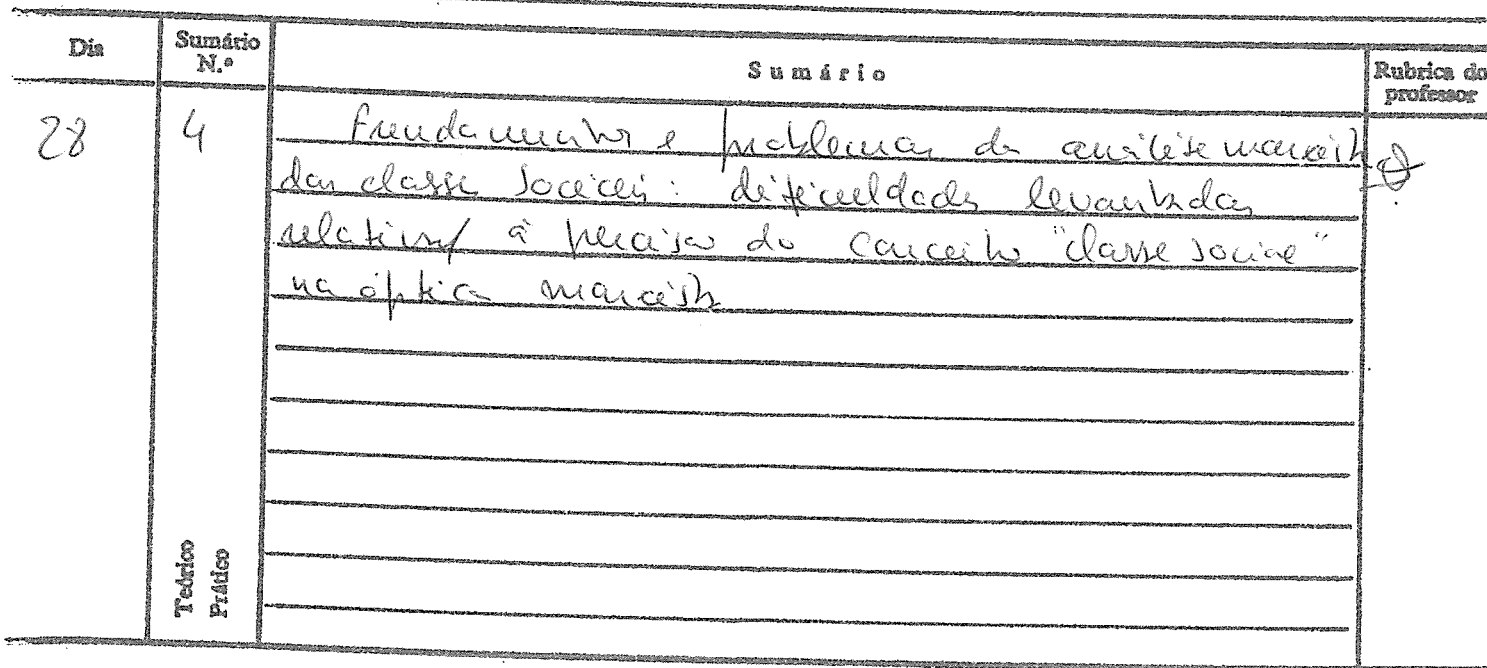 Dia Sumário N.º Sumário Rubrica do professor
28 4 Fundamentos e problemas da análise marxista
das classes sociais: dificuldades levantadas
relativas à precisão do conceito "classe social"
na óptica marxista
Teórico
Prático